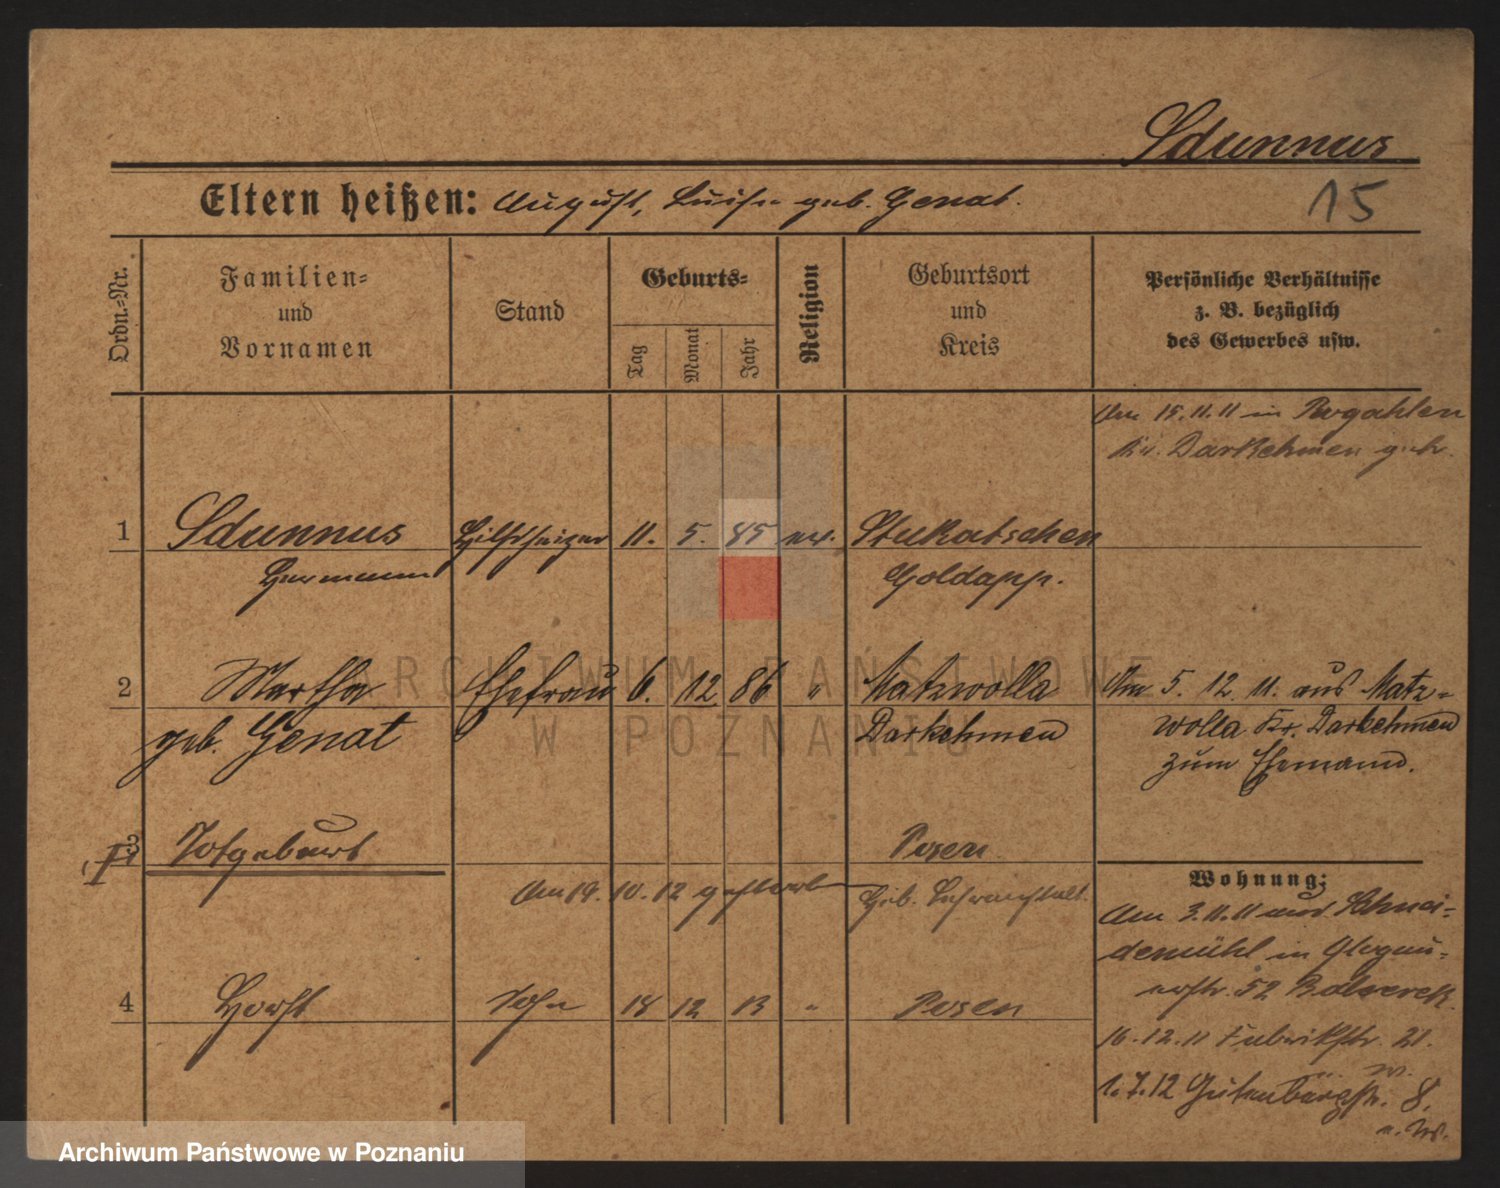 Sdunnus
Eltern heißen: August, Luise geb. Genat.
15
Ordn.=Nr.
Familien=
und
Vornamen
Stand
Geburts=
Tag
Monat
Jahr
Religion
Geburtsort
und
Kreis
Persönliche Verhältnisse
z. B. bezüglich
des Gewerbes usw.
Am 15.11.11 in Rogahlen
Kr. Darkehmen geh.
1 Sdunnus Hilfsheizer 11. 5. 85 ev. Stukatschen
Hermann Goldapp.
2 Martha Ehefrau 6. 12. 86 " Matzwolla Am 5. 12. 11. aus Matz=
geb. Genat Darkehmen wolla Kr. Darkehmen
zum Ehemann.
3 Totgeburt Posen
Am 19. 10. 12 Geb.
Wohnung:
Am 3.11.11 von Schnei=
demühl in Glogau=
erstr. 52
4 Horst Sohn 18 12 13 " Posen
16.12.11 Fabrikstr. 21.
u. W.
1.7.12 Gutenbergstr. 8.
u. W.
ARCHIWUM PAŃSTWOWE
W POZNANIU
Archiwum Państwowe w Poznaniu